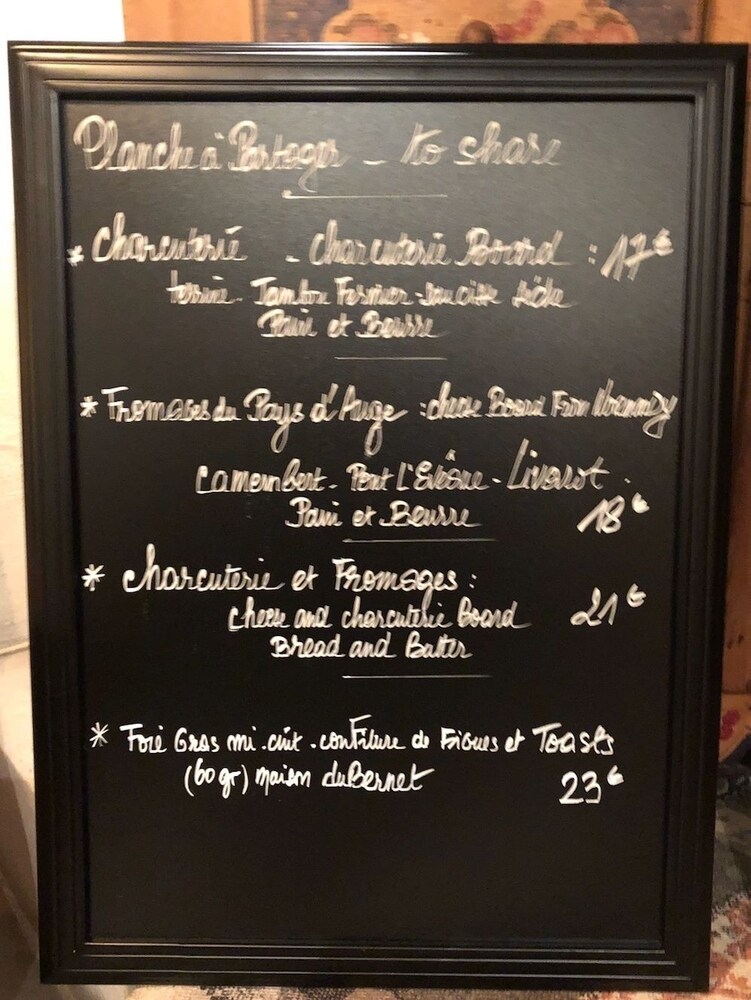 Planche à Partager - to share
* Charcuterie - charcuterie Board : 17€
terrine - Jambon Fermier - saucisse sèche
Pain et Beurre
* Fromages du Pays d'Auge : cheese Board From Normandy
Camembert - Pont L'Evêque - Livarot.
Pain et Beurre 18€
* charcuterie et Fromages :
cheese and charcuterie Board 21€
Bread and Butter
* Foie Gras mi-cuit - confiture de Figues et Toasts
(60 gr) maison duBernet 23€